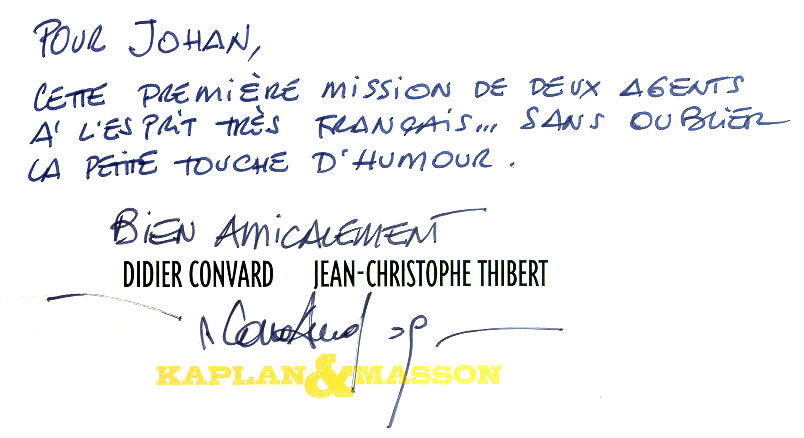 POUR JOHAN,
CETTE PREMIÈRE MISSION DE DEUX AGENTS
À L'ESPRIT TRÈS FRANÇAIS... SANS OUBLIER
LA PETITE TOUCHE D'HUMOUR.
BIEN AMICALEMENT
DIDIER CONVARD JEAN-CHRISTOPHE THIBERT
Convard
KAPLAN & MASSON